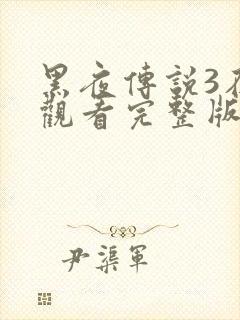 黑夜傳說3在
觀看完整版
尹渠軍